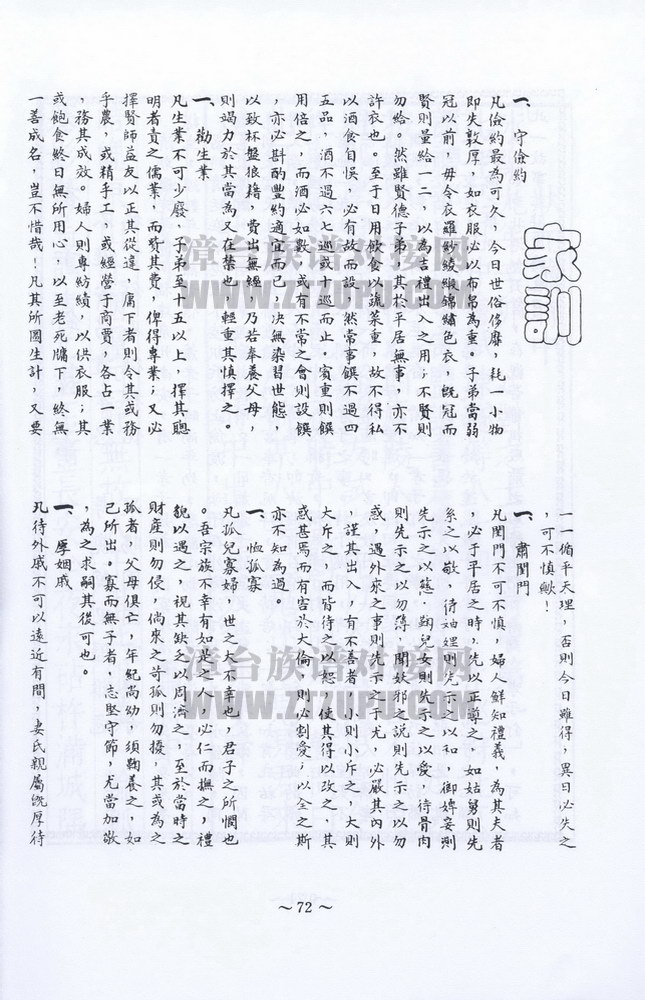 家訓
一、守儉約
凡儉約最為可久，今日世俗侈靡，耗一小物
即失敦厚，如衣服必以布帛為重。子弟當弱
冠以前，毋令衣羅紗綾緞錦繡色衣，既冠而
賢則量給一二，以為吉禮出入之用；不賢則
勿給。然雖賢德子弟，其於平居無事，亦不
許衣也。至于日用飲食以蔬菜重，故不得私
以酒食自娛，必有故而設，然常事饌不過四
五品，酒不過六七巡或十巡而止。賓重則饌
用倍之，而酒必如數，或有不常之會則設饌
，亦必斟酌豐約適宜而已，決無染習世態，
以致杯盤狼籍，費出無經，乃若奉養父母，
則竭力於其當為又在禁也，輕重其慎擇之。
一、勸生業
凡生業不可少廢，子弟至十五以上，擇其聰
明者責之儒業，而資其費，俾得專業；又必
擇賢師益友以正其從違，庸下者則令其或務
乎農，或精手工，或經營于商賈，各占一業
，務其成效。婦人則專紡績，以供衣服；其
或飽食終日無所用心，以至老死牖下，終無
一善成名，豈不惜哉！凡其所圖生計，又要
一一循乎天理，否則今日雖得，異日必失之
，可不慎歟！
一、肅閨門
凡閨門不可不慎，婦人鮮知禮義，為其夫者
，必于平居之時，先以正導之，如姑舅則先
示之以敬，待妯娌則先示之以和，御婢妾則
先示之以慈，鞠兒女則先示之以愛，待骨肉
則先示之以勿薄，聞妖邪之說則先示之以勿
惑，遇外來之事則先示之于尤，必嚴其內外
，謹其出入，有不善者，小則小斥之，大則
大斥之，而皆待之以恕，使其得以改之。其
惑甚焉而有害於大倫，則必割愛；以全之斯
亦不知為過。
一、恤孤寡
凡孤兒寡婦，世之大不幸也，君子之所憫也
。吾宗族不幸有如是之人，必仁而撫之，禮
貌以遇之，視其缺乏以周濟之，至於當時之
財產則勿侵，倘來之苛孤則勿擾，其或為之
孤者，父母俱亡，年紀尚幼，須鞠養之，如
己所出。寡而無子者，志堅守節，尤當加敬
，為之求嗣其後可也。
一、厚姻戚
凡待外戚不可以遠近有間，妻氏親屬既厚待
～72～
漳台族谱对接网
WWW.ZTZUPU.COM
漳台族谱对接网
WWW.ZTZUPU.COM